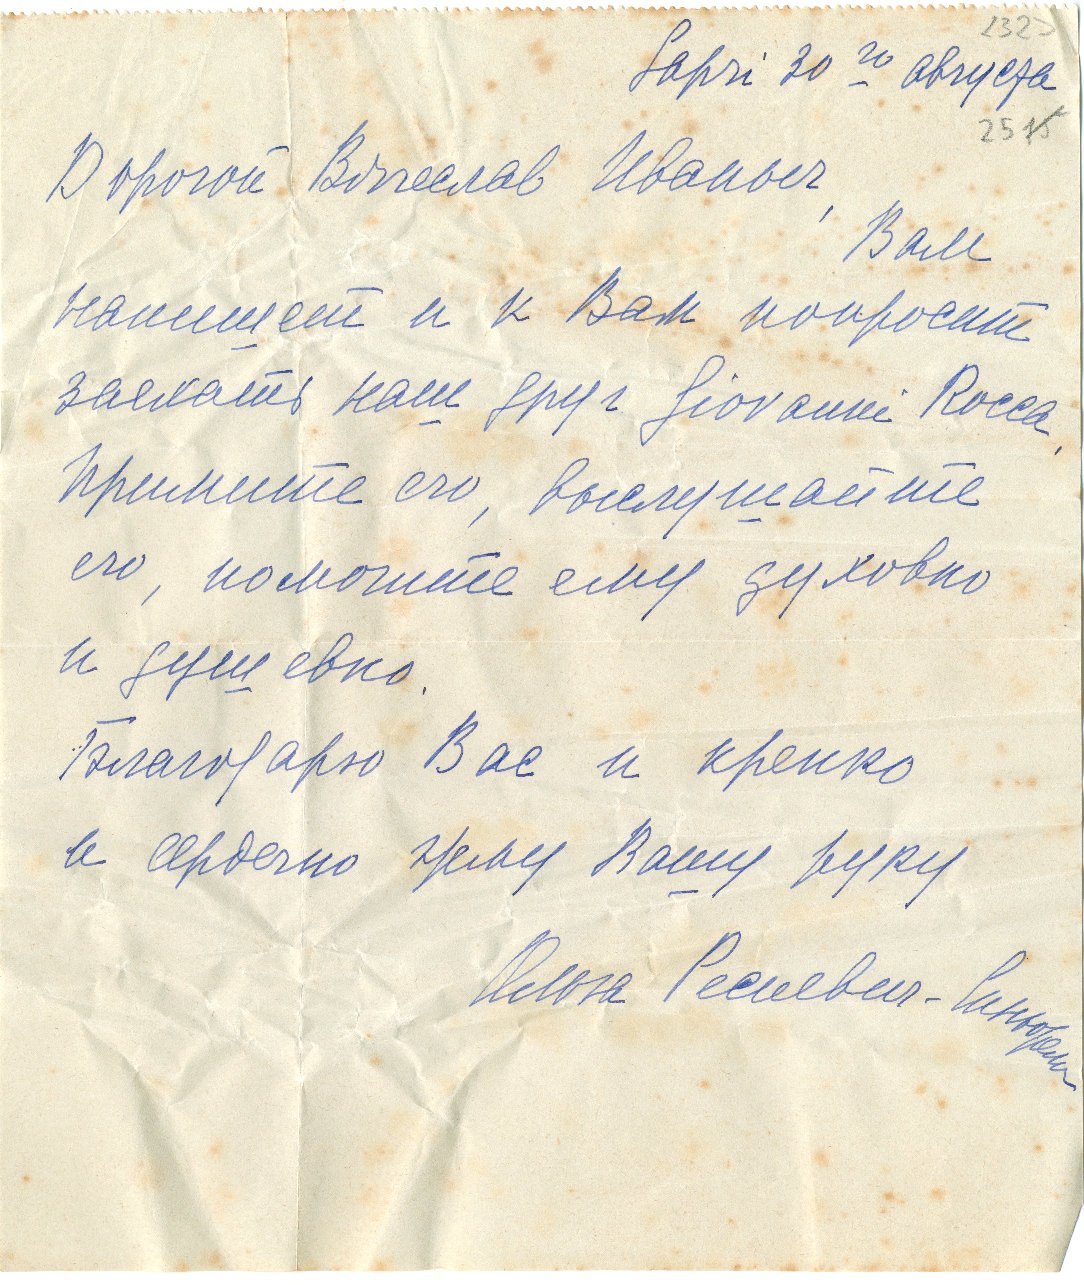 30го августа
Дорогой Вячеслав Иваныч,
Вам
напишет и к Вам попросит
заехать наш друг Giovanni Rocca.
Примите его, выслушайте
его, помогите ему духовно
и душевно.
Благодарю Вас и крепко
и сердечно жму Вашу руку
Ольга Ресневич-Синьорели